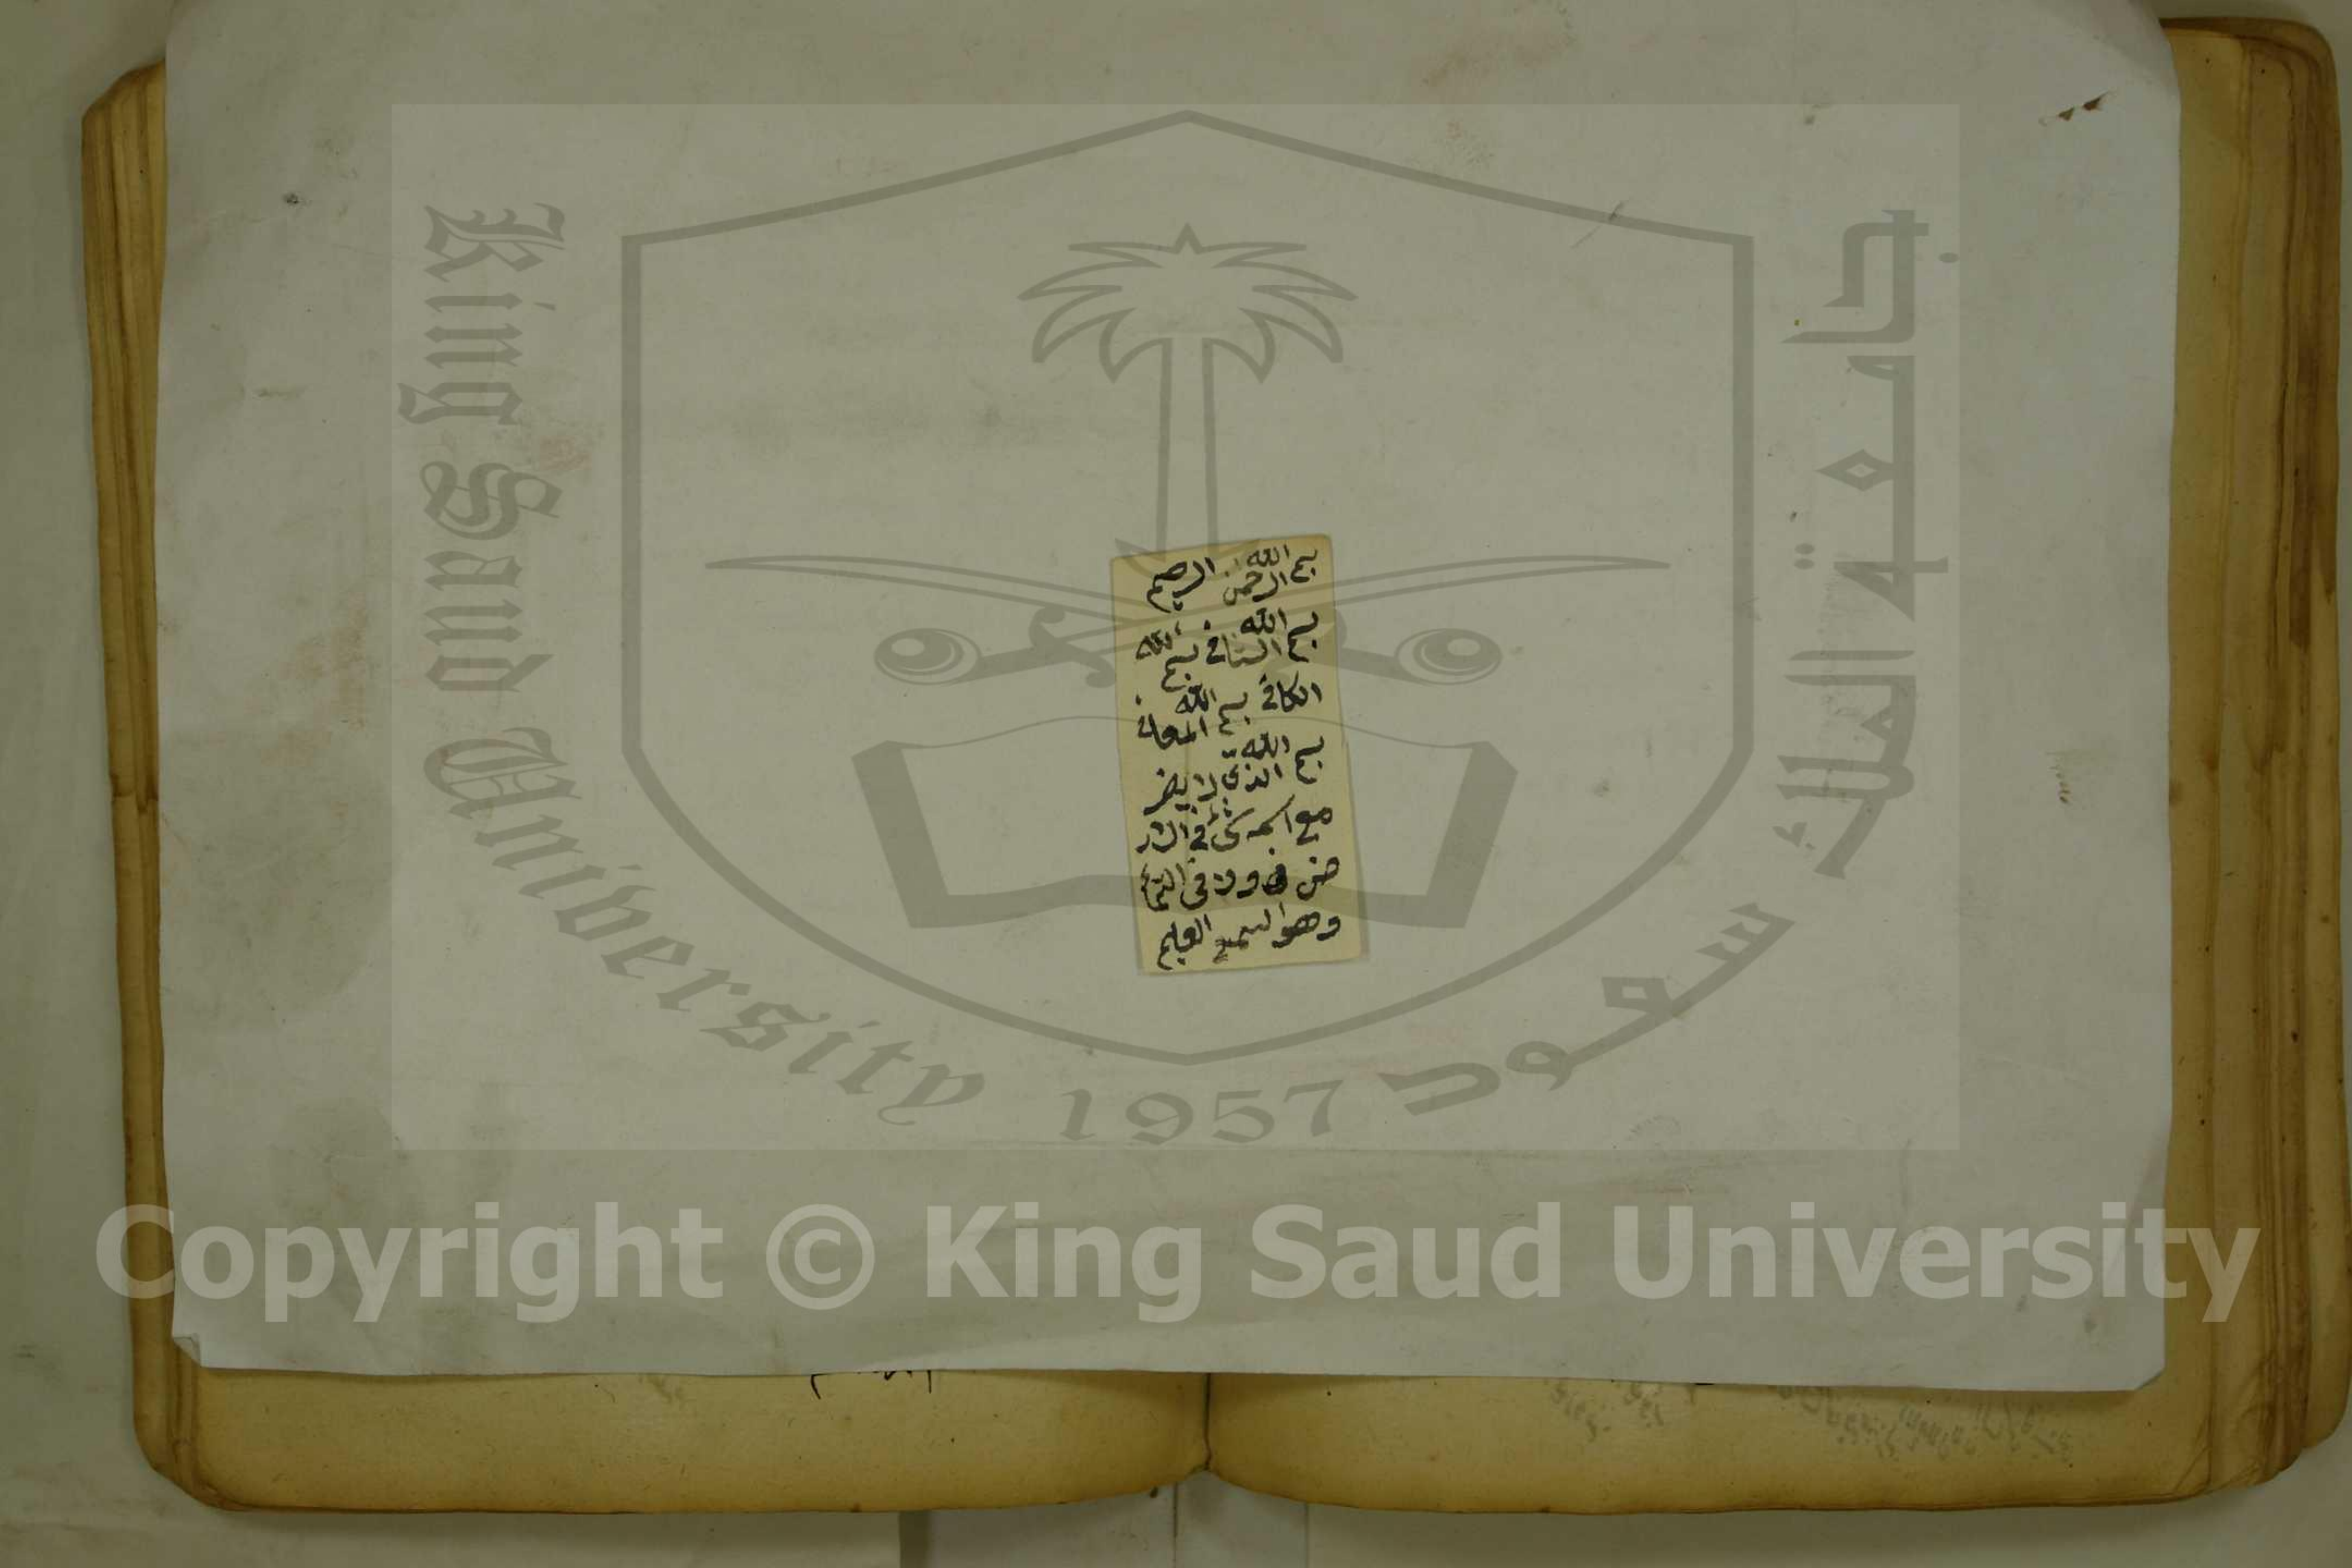 بسم الله الرحمن الرحيم
بسم الله الشافي بسم الله
الكافي بسم الله المعافي
بسم الله الذي لا يضر
مع اسمه شئ في الار
ض ولا في السماء
وهو السميع العليم
King Saud University 1957 جامعة الملك سعود
Copyright © King Saud University